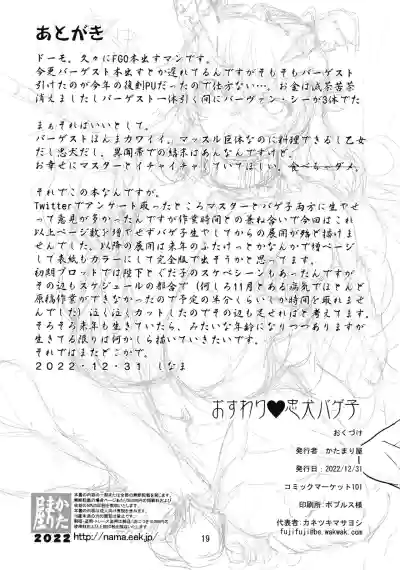 あとがき
ドーモ。久々にFGO本出すマンです。
今更バーゲスト本出すとか遅れてるんですがそもそもバーゲスト
引けたのが今年の復刻PUだったので仕方ない…。お金は滅茶苦茶
消えましたしバーゲスト一体引く間にバーヴァン・シーが3体でた
まぁそれはいいとして。
バーゲストほんまカワイイ。マッスル巨体なのに料理できるし乙女
だし忠犬だし。異聞帯での結末はあんなんですけど。
お幸せにマスターとイチャイチャしていてほしい。食べちーダメ。
それでこの本なんですが。
Twitterでアンケート取ったところマスターとバゲ子両方に生やせ
って意見が多かったんですが作業時間との兼ね合いで今回はこれ
以上ページ数を増やせずバゲ子生やしてからの展開が殆ど描けま
せんでした。以降の展開は来年のふたけっとかなんかで増ページ
して表紙もカラーにして完全版で出そうかと思ってます。
初期プロットでは陛下とぐだ子のスケベシーンもあったんですが
その辺もスケジュールの都合で(何しろ11月とある病気でほとんど
原稿作業ができなかったので予定の半分くらいしか時間を取れませ
んでした)泣く泣くカットしたのでその辺も足せればと考えてます。
そろそろ来年も生きていたら、みたいな年齢になりつつありますが
生きてる限りは何かしら描いていきたいです。
それではまたどこかで。
2022・12・31 しなま
おすわり♥忠犬バゲ子
おくづけ
発行者:かたまり屋
発行日:2022/12/31
コミックマーケット101
印刷所:ポプルス様
代表者:カネツキマサヨシ
fujifuji@be.wakwak.com
かたまり屋
2022
http://nama.eek.jp/
19